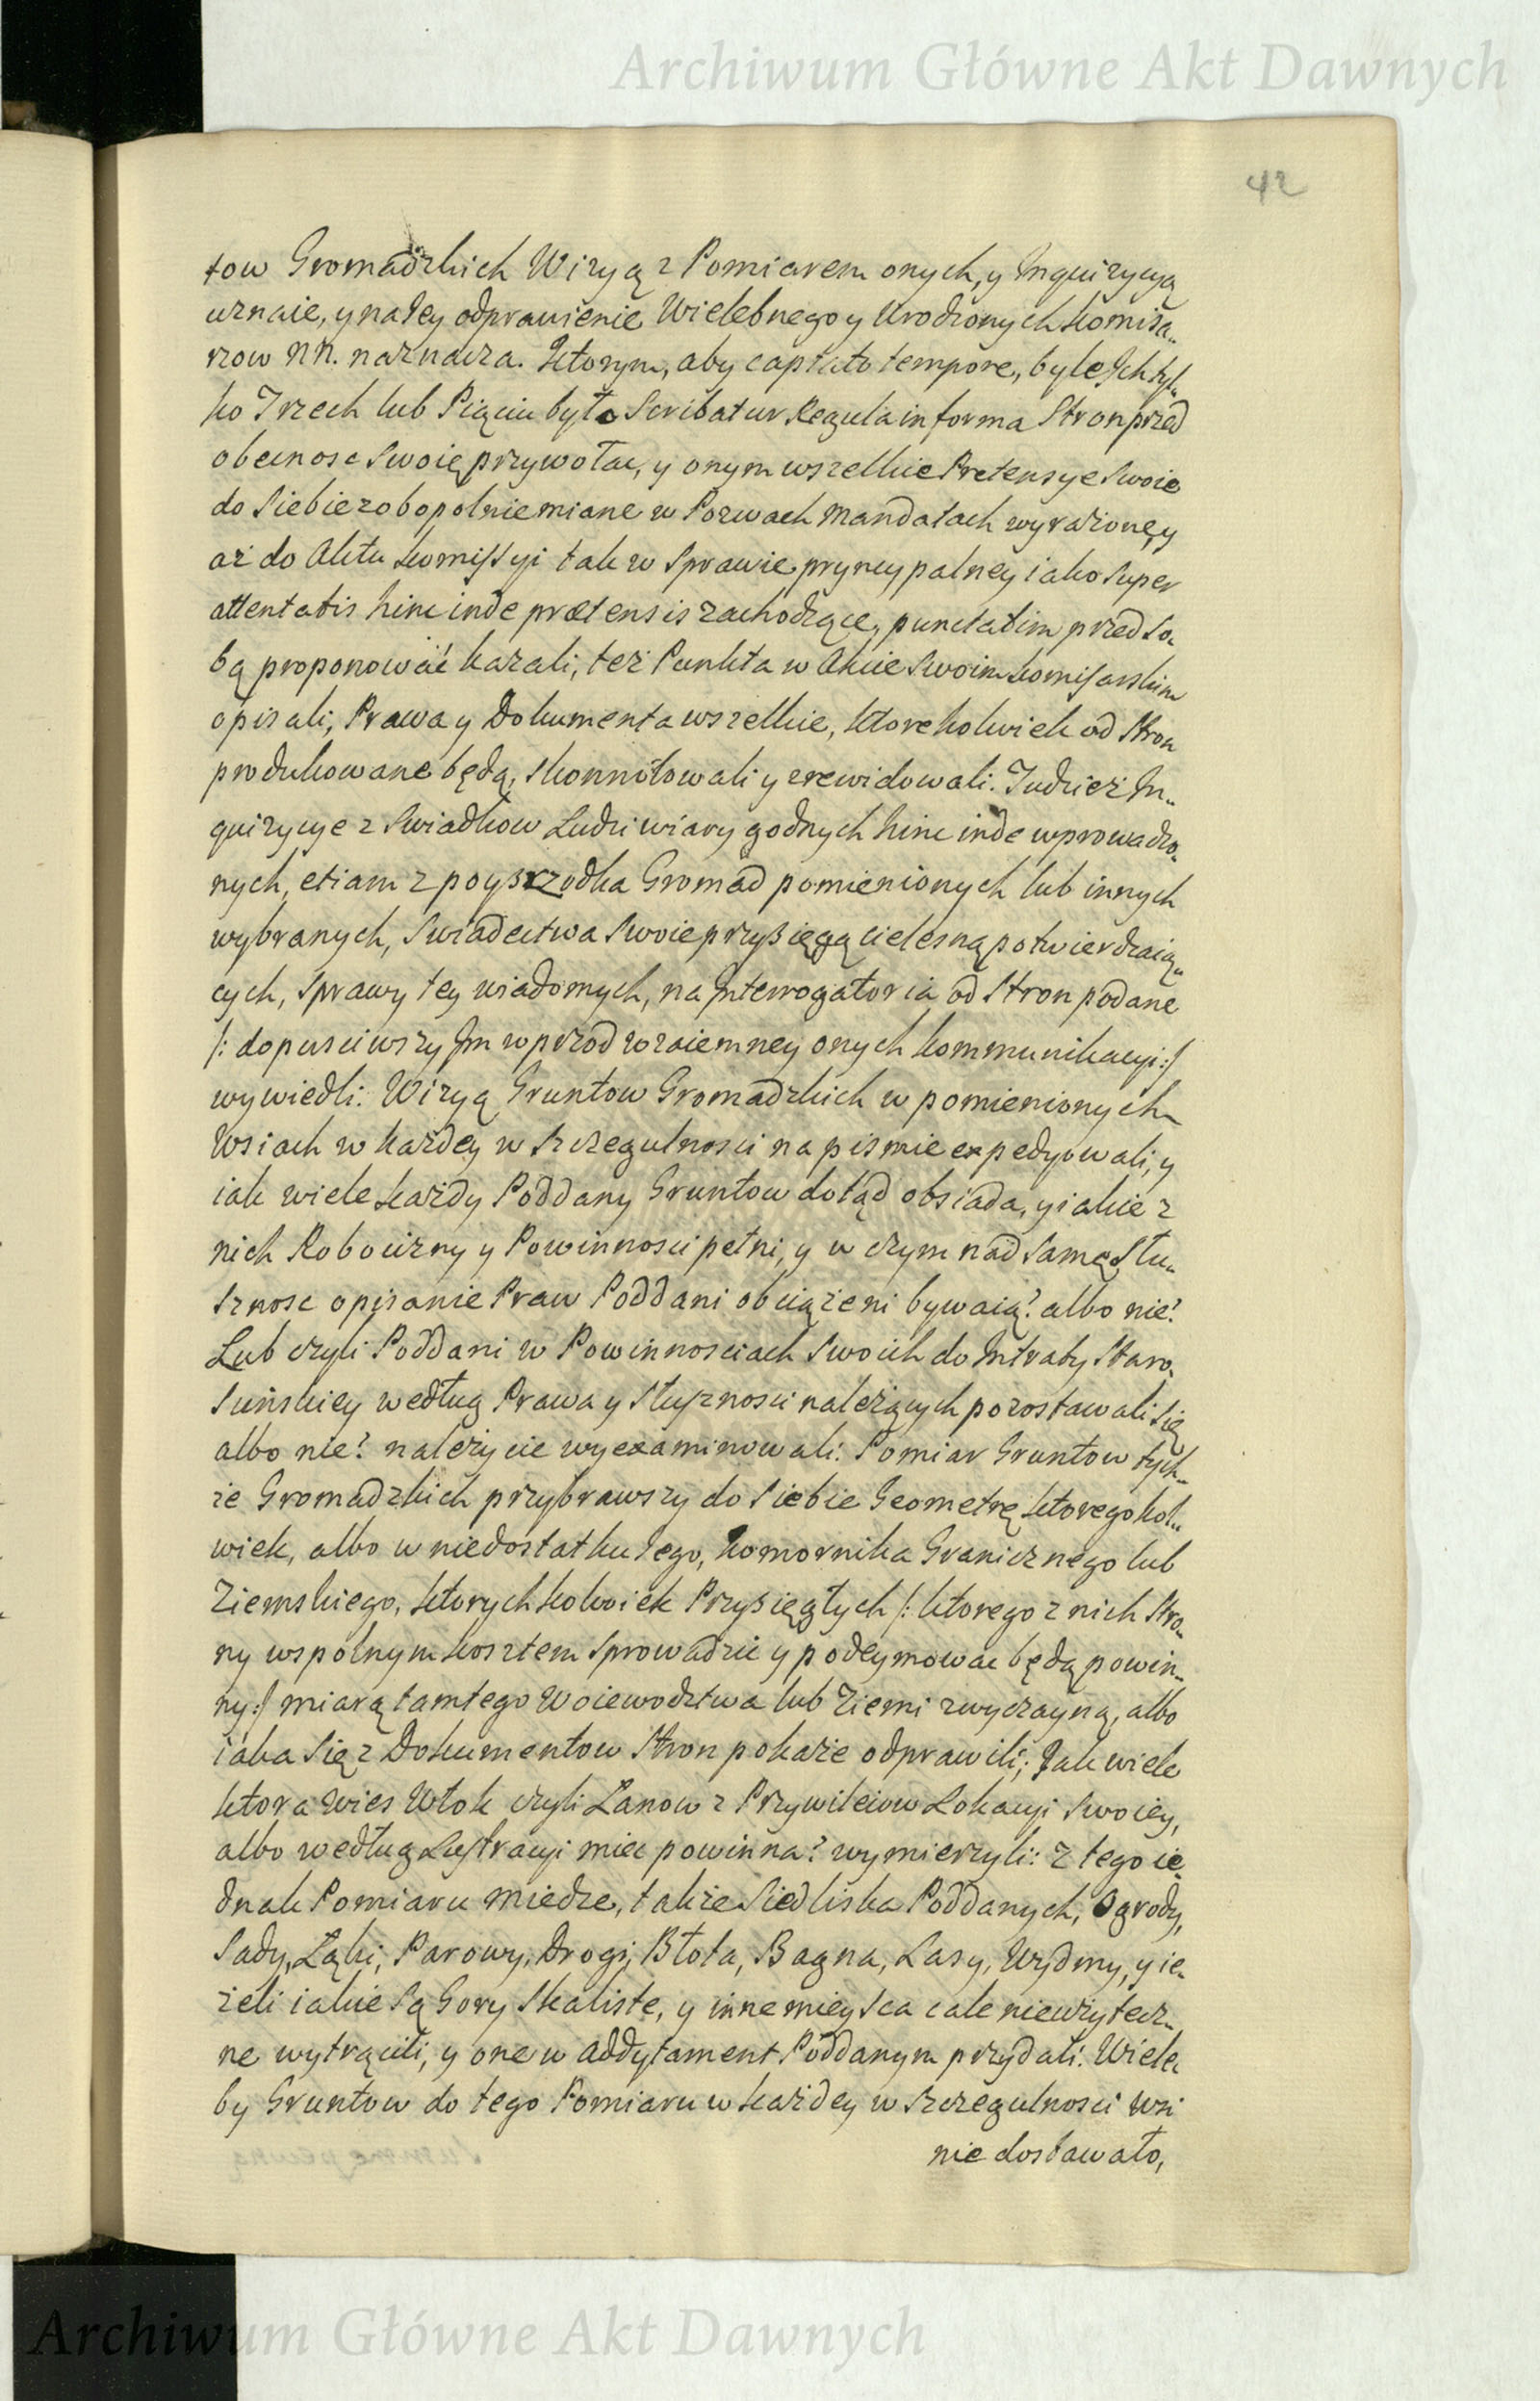 Archiwum Główne Akt Dawnych
42
tow Gromadzkich Wizyą z Pomiarem onych, y Inquizycyą
uznaie, y na Iey odprawienie Wielebnego y Urodzonych Komisa„
rzow NN. naznacza. Ktorym, aby captato tempore, byle Ich tyl„
ko Trzech lub Pięciu było Scribatur Regula in forma Stron przed
obecnosc Swoię przywołac, y onym wszelkie Pretensye Swoie
do Siebie zobopolnie miane w Pozwach Mandatach wyrażone, y
aż do Aktu Komissyi tak w Sprawie pryncypalney iako Super
attentatis hinc inde prætensis zachodzące, punctatim przed So„
bą proponować kazali, też Punkta w Akcie Swoim Komisarskim
opisali, Prawa y Dokumenta wszelkie, ktorekolwiek od Stron
produkowane będą, skonnotowali y zrewidowali. Tudzież In„
quizycye z Swiadkow Ludzi wiary godnych hinc inde wprowadzo„
nych, etiam z poysrzodka Gromad pomienionych lub innych
wybranych, Swiadectwa Swoie przysięgą cielesną potwierdzaią„
cych, Sprawy tey wiadomych, na Interrogatoria od Stron podane
/: dopusciwszy Im wprzod wzaiemney onych kommunikacyi :/
wywiedli: Wizyą Gruntow Gromadzkich w pomienionych
Wsiach w każdey w Szczegulnosci na pismie expedyowali, y
iak wiele każdy Poddany Gruntow dotąd obsiada, y iakie z
nich Robocizny y Powinnosci pełni, y w czym nad samą Słu„
sznosc opisanie Praw Poddani obciążeni bywaią? albo nie?
Lub czyli Poddani w Powinnosciach Swoich do Intraty Staro„
Scińskiey według Prawa y Słuszności należących pozostawali się
albo nie? należycie wyexaminowali: Pomiar Gruntow tych„
że Gromadzkich przybrawszy do Siebie Geometrę ktoregokol„
wiek, albo w niedostatku Iego, Komornika Granicznego lub
Ziemskiego, ktorychkolwiek Przysięgłych /: ktorego z nich Stro„
ny wspolnym kosztem Sprowadzic y podeymowac będą powin„
ny :/ miarą tamtego Woiewodztwa lub Ziemi zwyczayną, albo
iaka Się z Dokumentow Stron pokaże odprawili; Jak wiele
ktora Wies Włok czyli Łanow z Przywileiow Lokacyi Swoiey,
albo według Lustracyi miec powinna? wymierzyli: z tego ie„
dnak Pomiaru Miedze, także Siedliska Poddanych, Ogrody,
Sady, Łąki, Parowy, Drogi, Błota, Bagna, Lasy, Wydmy, y ie„
żeli iakie Są Gory Skaliste, y inne mieysca cale nieużytecz„
ne wytrącili, y one w Addytament Poddanym przydali. Wiele
by Gruntow do tego Pomiaru w każdey w Szczegulnosci Wsi
nie dostawało,
Archiwum Główne Akt Dawnych